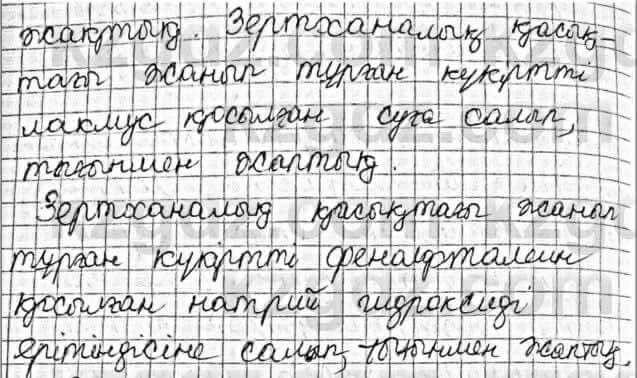 жақтық. Зертханалық қасық-
тағы жанып тұрған күкіртті
лакмус қосылған суға салып,
тығынмен жаптық.
Зертханалық қасықтағы жанып
тұрған күкіртті фенолфталеин
қосылған натрий гидроксиді
ерітіндісіне салып, тығынмен жаптық.